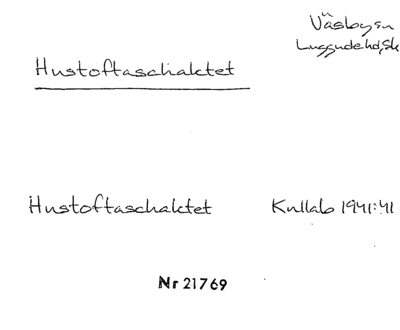 Väsby sn
Luggude hd, Sk
Hustoftaschaktet
Hustoftaschaktet Kullab 1941:41
Nr 21769